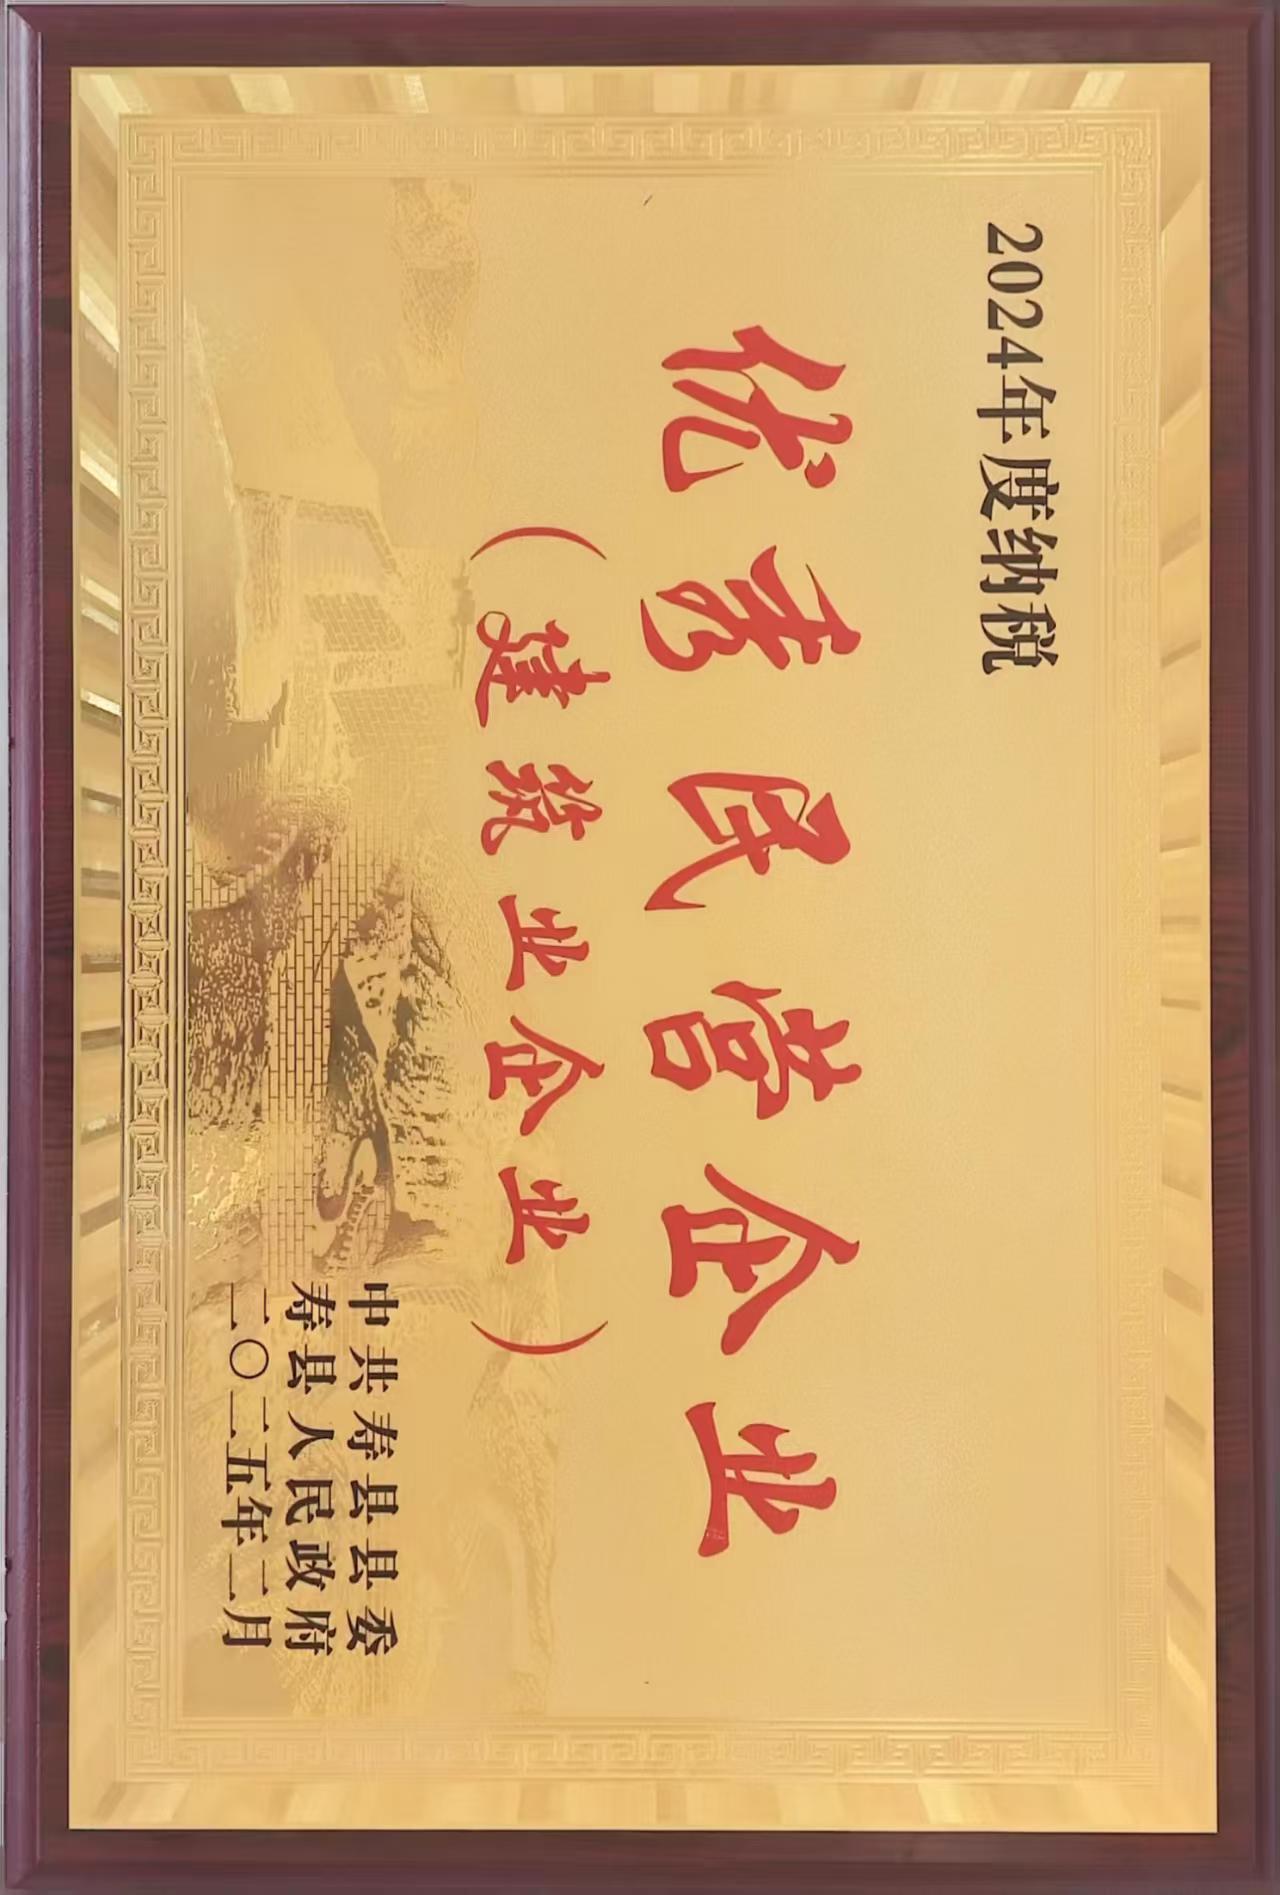 2024年度纳税
优秀民营企业
（建筑业企业）
中共寿县县委
寿县人民政府
二〇二五年二月